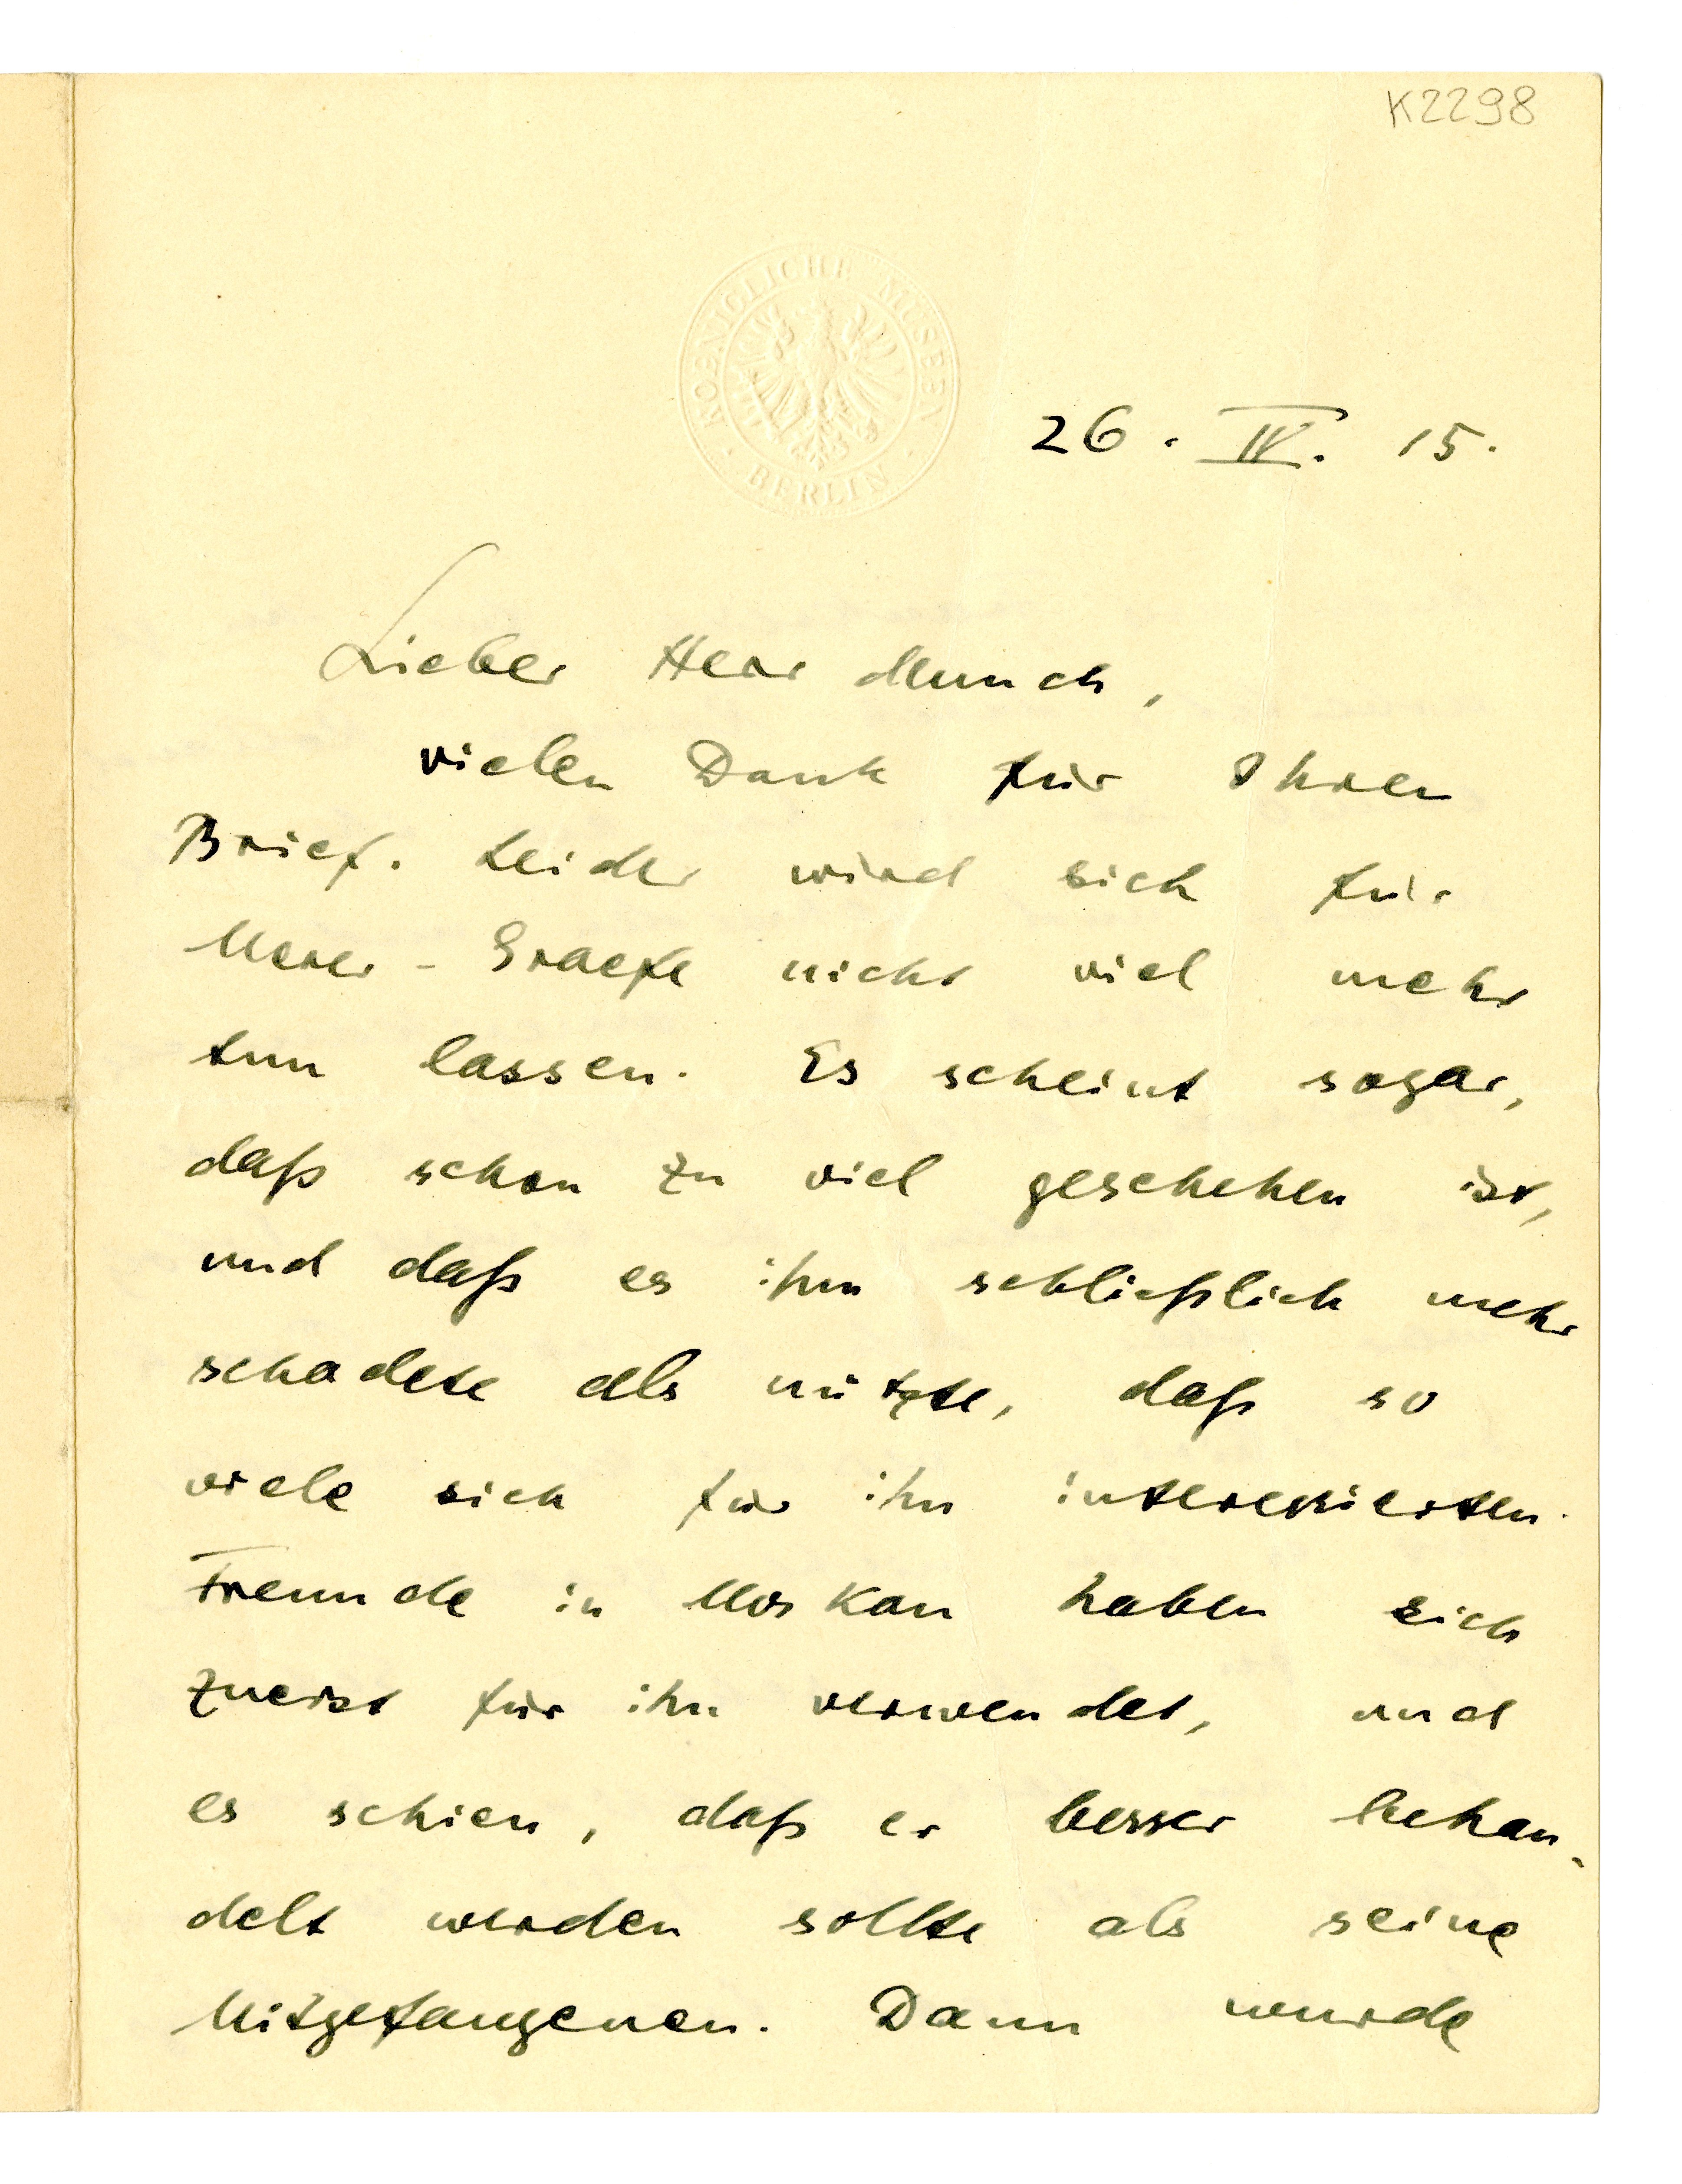 K2298
KOENIGLICHE MUSEEN
BERLIN
26. IV. 15.
Lieber Herr Munch,
vielen Dank für Ihren
Brief. Leider wird sich für
Meier-Graefe nicht viel mehr
tun lassen. Es scheint sogar,
daß schon zu viel geschehen ist,
und daß es ihm schließlich mehr
schadete als nützte, daß so
viele sich für ihn interessierten.
Freunde in Moskau haben sich
zuerst für ihn verwendet, und
es schien, daß er besser behan-
delt werden sollte als seine
Mitgefangenen. Dann wurde